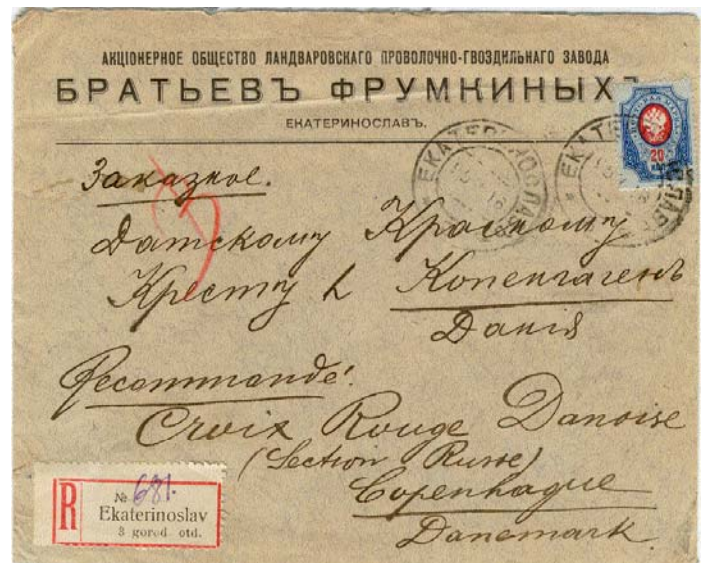 АКЦІОНЕРНОЕ ОБЩЕСТВО ЛАНДВАРОВСКАГО ПРОВОЛОЧНО-ГВОЗДИЛЬНАГО ЗАВОДА
БРАТЬЕВЪ ФРУМКИНЫХЪ
ЕКАТЕРИНОСЛАВЪ.
ЕКАТЕРИНОСЛАВЪ
ЕКАТЕРИНОСЛАВЪ
20
Заказное.
Датскому Красному
Кресту в Копенгагенъ
Данія
Recommandé.
Croix Rouge Danoise
(Section Russe)
Copenhague
Danemark
R
№ 681.
Ekaterinoslav
3 gorod otd.